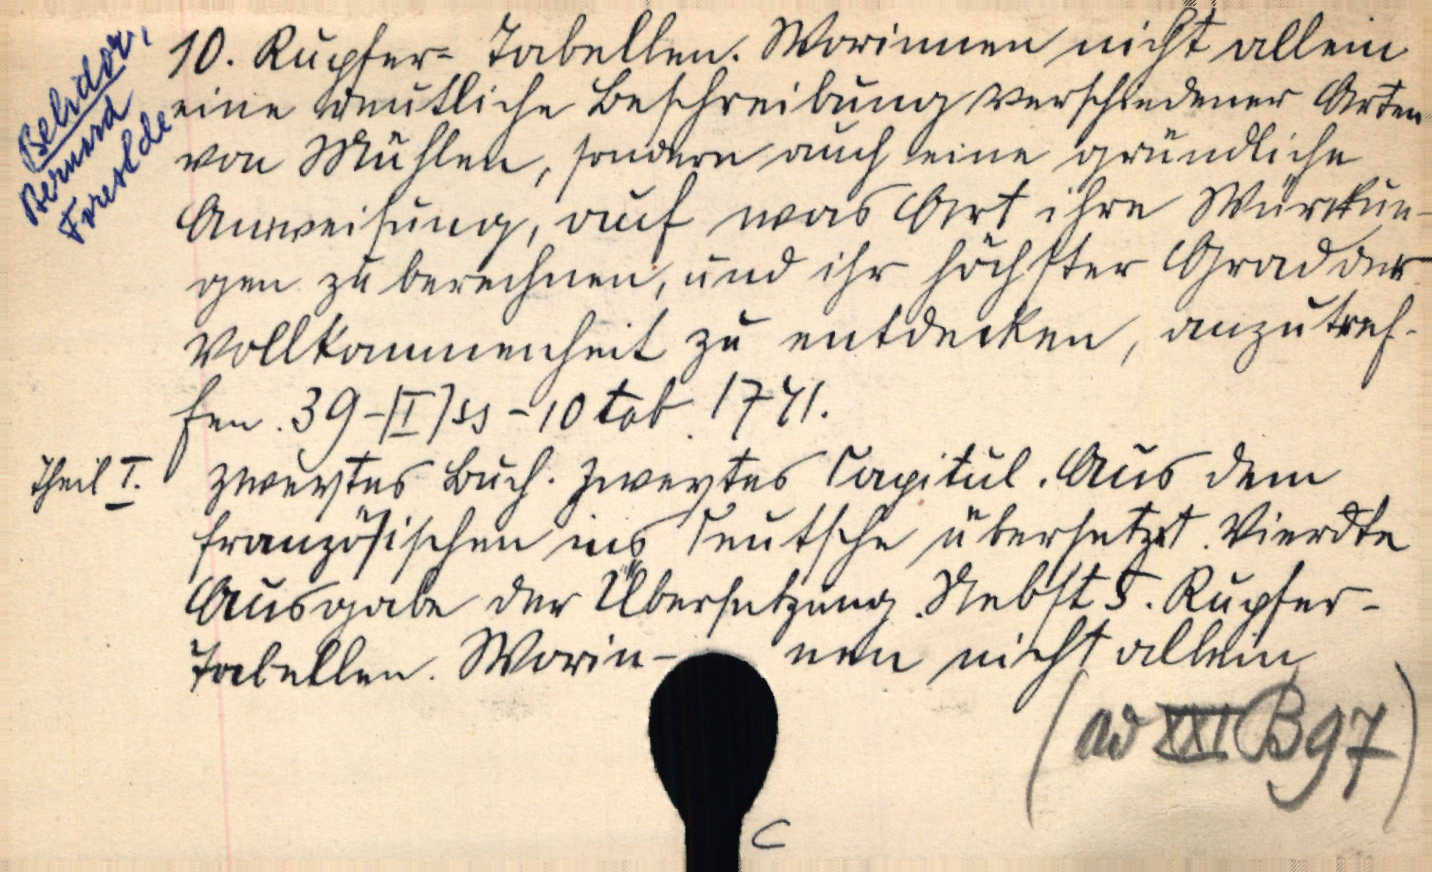 Belidor,
Bernard
Forest de
10. Kupfer= Tabellen. Worinnen nicht allein
eine deutliche Beschreibung verschiedener Arten
von Mühlen, sondern auch eine gründliche
Anweisung, auf was Art ihre Würckun-
gen zu berechnen, und ihr höchster Grad der
Vollkommenheit zu entdecken, anzutref-
fen. 39-[I] ss - 10 tab. 1741.
Theil I. Zweytes Buch. Zweytes Capitul. Aus dem
französischen ins Teutsche übersetzt. Vierdte
Ausgabe der Übersetzung. Nebst 5. Kupfer-
Tabellen. Worin- nen nicht allein
(ad XXI B 97)
C